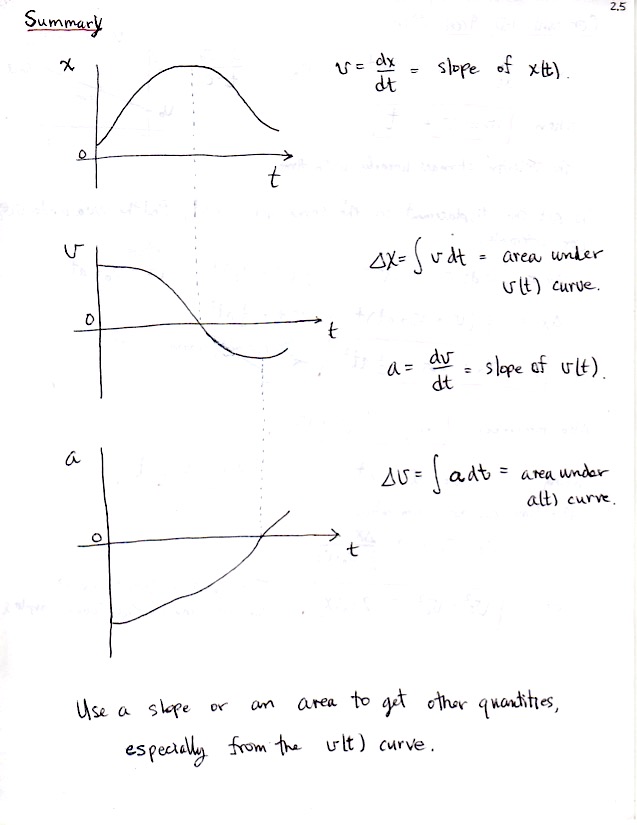 2.5
Summary
x
v = dx/dt = slope of x(t).
0
t
v
Δx = ∫ v dt = area under
v(t) curve.
0
t
a = dv/dt = slope of v(t).
a
Δv = ∫ a dt = area under
a(t) curve.
0
t
Use a slope or an area to get other quantities,
especially from the v(t) curve.